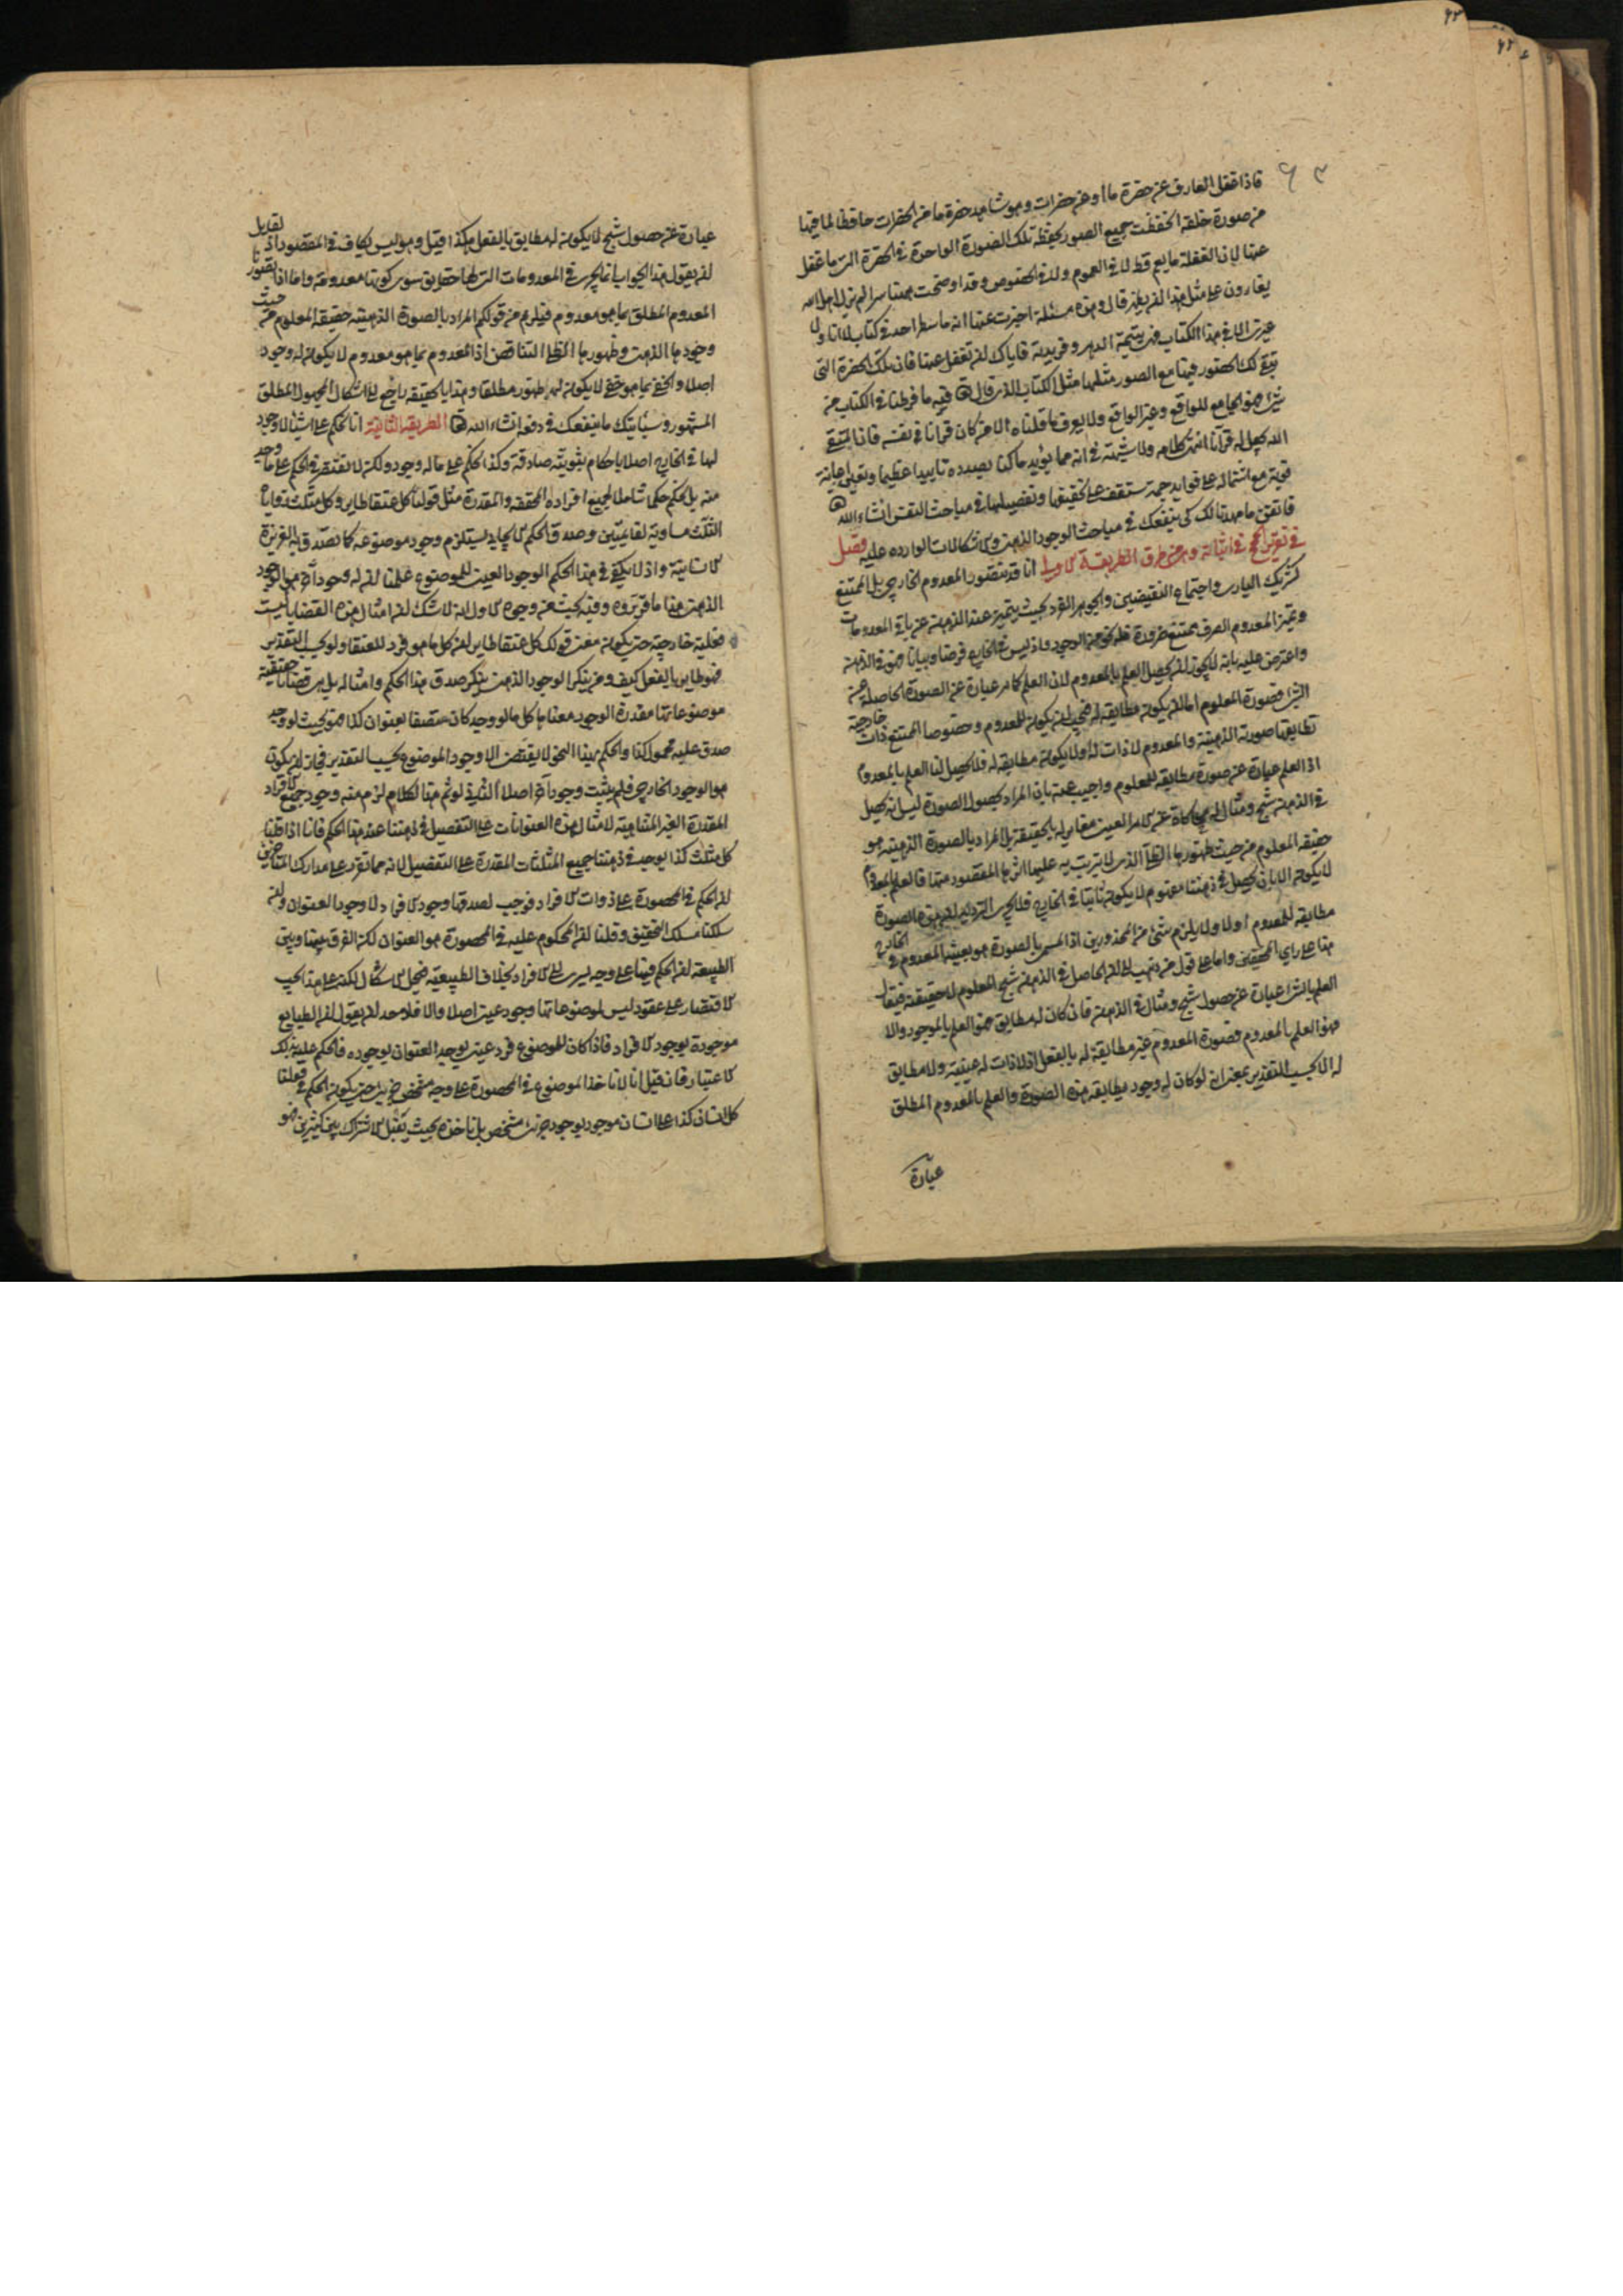 ۶۳
فاذا غفل العارف عن حضرة ما او عن حضرات وهو شاهد حضرة ما من الحضرات حافظ لما فيها
من صورة خلقه انحفظت جميع الصور بحفظه تلك الصورة الواحدة في الحضرة التي ما غفل
عنها لان الغفلة ما يعم قط لا في العموم ولا في الخصوص وقد اوضحت هيهنا سرا لم يزل اهل الله
يغارون على مثل هذا ان يظهر قال وهذه مسئلة اخبرت عنها انه ما سطر احد في كتاب لا انا ولا
غيري الا في هذا الكتاب فهي يتيمة الدهر وفريدته فاياك ان تغفل عنها فان تلك الحضرة التي
تبقى لك الحضور فيها مع الصور مثلها مثل الكتاب الذي قال الله فيه ما فرطنا في الكتاب من
شئ فهو الجامع للواقع وغير الواقع ولا يعرف ما قلناه الا من كان قرانا في نفسه فان المتقي
الله يجعل له فرقانا انتهى كلامه ولا شبهة في انه مما يؤيد ما كنا بصدده تاييدا عظيما ويعين اعانة
قوية مع اشتماله على فوايد جمة ستقف على تحقيقها وتفصيلها في مباحث النفس انشاء الله تعا
فاتقن ما مهدناه لك كي ينفعك في مباحث الوجود الذهني والاشكالات الواردة عليه فصل
في تقرير الحجج في اثباته وهي من طرق الطريقة الاولى انا قد نتصور المعدوم الخارجي بل الممتنع
كشريك الباري واجتماع النقيضين والجوهر الفرد بحيث يتميز عند الذهن عن باقي المعدومات
وتميز المعدوم الصرف ممتنع ضرورة فله نحو من الوجود واذ ليس في الخارج فرضا وبيانا فهو في الذهن
واعترض عليه بانه لا يجوز ان يحصل العلم بالمعدوم لان العلم كما مر عبارة عن الصورة الحاصلة عن
الشئ فصورة المعلوم اما ان يكون مطابقه له فيجب ان يكون للمعدوم وخصوصا الممتنع ذات خارجية
تطابقها صورته الذهنية والمعدوم لا ذات له او لا يكون مطابقه له فلا يحصل لنا العلم بالمعدوم
اذ العلم عبارة عن صورة مطابقه للمعلوم واجيب عنه بان المراد بحصول الصورة ليس انه يحصل
في الذهن شبح ومثال له محاكاة عن الامر العيني مغاير له بالحقيقة بل المراد بالصورة الذهنيه هو
حقيقه المعلوم من حيث ظهورها الظلي الذي لا يترتب به عليها اثرها المقصود منها فالعلم بالمعدوم
لا يكون الا بان يحصل في ذهننا مفهوم لا يكون ثابتا في الخارج فلا يجري الترديد بان هذه الصورة
مطابقه للمعدوم او لا ولا يلزم شئ من المحذورين اذ المسمى بالصورة هو بعينه المعدوم في الخارج
هذا على راي المحققين واما على قول من ذهب الى ان الحاصل في الذهن شبح المعلوم لا حقيقته فيقال
العلم بالشئ عبارة عن حصول شبح ومثال في الذهن فان كان له مطابق فهو العلم بالموجود والا
فهو العلم بالمعدوم فصورة المعدوم غير مطابقة له بالفعل اذ لا ذات له عينية ولا مطابق
له الا بحسب التقدير بمعنى انه لو كان له وجود يطابقه هذه الصورة والعلم بالمعدوم المطلق
عبارة
عبارة عن حصول شبح لا يكون له مطابق بالفعل هكذا قيل وهو ليس بكاف في المقصود اذ لقايل
ان يقول هذا الجواب انما يجري في المعدومات التي لها حقايق سوى كونها معدومة واما اذا تصورنا
المعدوم المطلق بما هو معدوم فيلزم من قولكم المراد بالصورة الذهنيه حقيقه المعلوم من حيث
وجودها الذهني وظهورها الظلي التناقض اذ المعدوم بما هو معدوم لا يكون له وجود
اصلا والخفي بما هو خفي لا يكون له ظهور مطلقا وهذا بالحقيقه راجع الى اشكال المجهول المطلق
المشهور وسياتيك ما ينفعك في دفعه انشاء الله تعا الطريقه الثانية انا نحكم على اشياء لا وجود
لها في الخارج اصلا باحكام ثبوتية صادقة وكذا نحكم على ما له وجود ولكن لا نقتصر في الحكم على ما وجد
منه بل نحكم حكما شاملا لجميع افراده المحققه والمقدرة مثل قولنا كل عنقا طاير وكل مثلث زواياه
الثلث مساوية لقائمتين وصدق الحكم الايجابي يستلزم وجود موضوعه كما تصدق به الغريزة
الانسانية واذ لا يكفي في هذا الحكم الوجود العيني للموضوع علمنا ان له وجودا آخر هو الوجود
الذهني هذا ما قرروه وفيه بحث من وجوه الاول انه لا شك ان امثال هذه القضايا ليست
فعلية خارجية حتى يكون معنى قولك كل عنقا طاير ان كل ما هو فرد للعنقا ولو بحسب التقدير
فهو طاير بالفعل كيف ومن ينكر الوجود الذهني ينكر صدق هذا الحكم وامثاله بل هي قضايا حقيقية
موضوعاتها مقدرة الوجود معناها كل ما لو وجد كان متصفا بعنوان كذا فهو بحيث لو وجد
صدق عليه محمول كذا والحكم بهذا النحو لا يقتضي الا وجود الموضوع بحسب التقدير فجاز ان يكون
هو الوجود الخارجي فلم يثبت وجود آخر اصلا الثاني لو تم هذا الكلام لزم منه وجود جميع الافراد
المقدرة الغير المتناهية لامثال هذه العنوانات على التفصيل في ذهننا عند هذا الحكم فانا اذا قلنا
كل مثلث كذا يوجد في ذهننا جميع المثلثات المقدرة على التفصيل لانه مما تقرر على مدارك المتاخرين
ان الحكم في المحصورة على ذوات الافراد فوجب لصدقها وجود الافراد لا وجود العنوان ولئن
سلكنا مسلك التحقيق وقلنا ان المحكوم عليه في المحصورة هو العنوان لكن الفرق بينها وبين
الطبيعة ان الحكم فيها على وجه يسري الى الافراد بخلاف الطبيعية فينحل الاشكال لكنه على هذا يجب
الاقتصار على عقود ليس لموضوعاتها وجود عيني اصلا والا فلاحد ان يقول ان الطبايع
موجودة بوجود الافراد فاذا كان للموضوع فرد عيني يوجد العنوان بوجوده فالحكم عليه بذلك
الاعتبار فان قيل انا لا ناخذ الموضوع في المحصورة على وجه شخصي جزئي حتى يكون الحكم في قولنا
كل انسان كذا على انسان موجود بوجود جزئي متشخص بل ناخذه بحيث يقبل الاشتراك بين كثيرين فهو